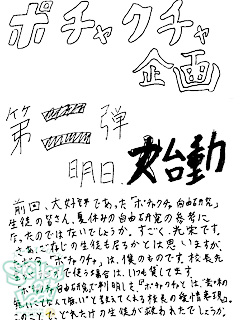 ポチャクチャ
企画
第二弾
明日、始動
前回、大好評であった「ポチャクチャ自由研究」
生徒の皆さん、夏休みの自由研究の参考に
なったのではないでしょうか。すごく光栄です。
さあ、ごねじの生徒も居るかとは思いますが、
「ポチャクチャ」は、僕のものです。校長先
で使う場合は、いつも貸してます。
「ポチャクチャ自由研究」で判明した「ポチャクチャ」とは
」と教えてくれる校長の愛情表現。
このことで、どれだけの生徒が救われたでしょうか。